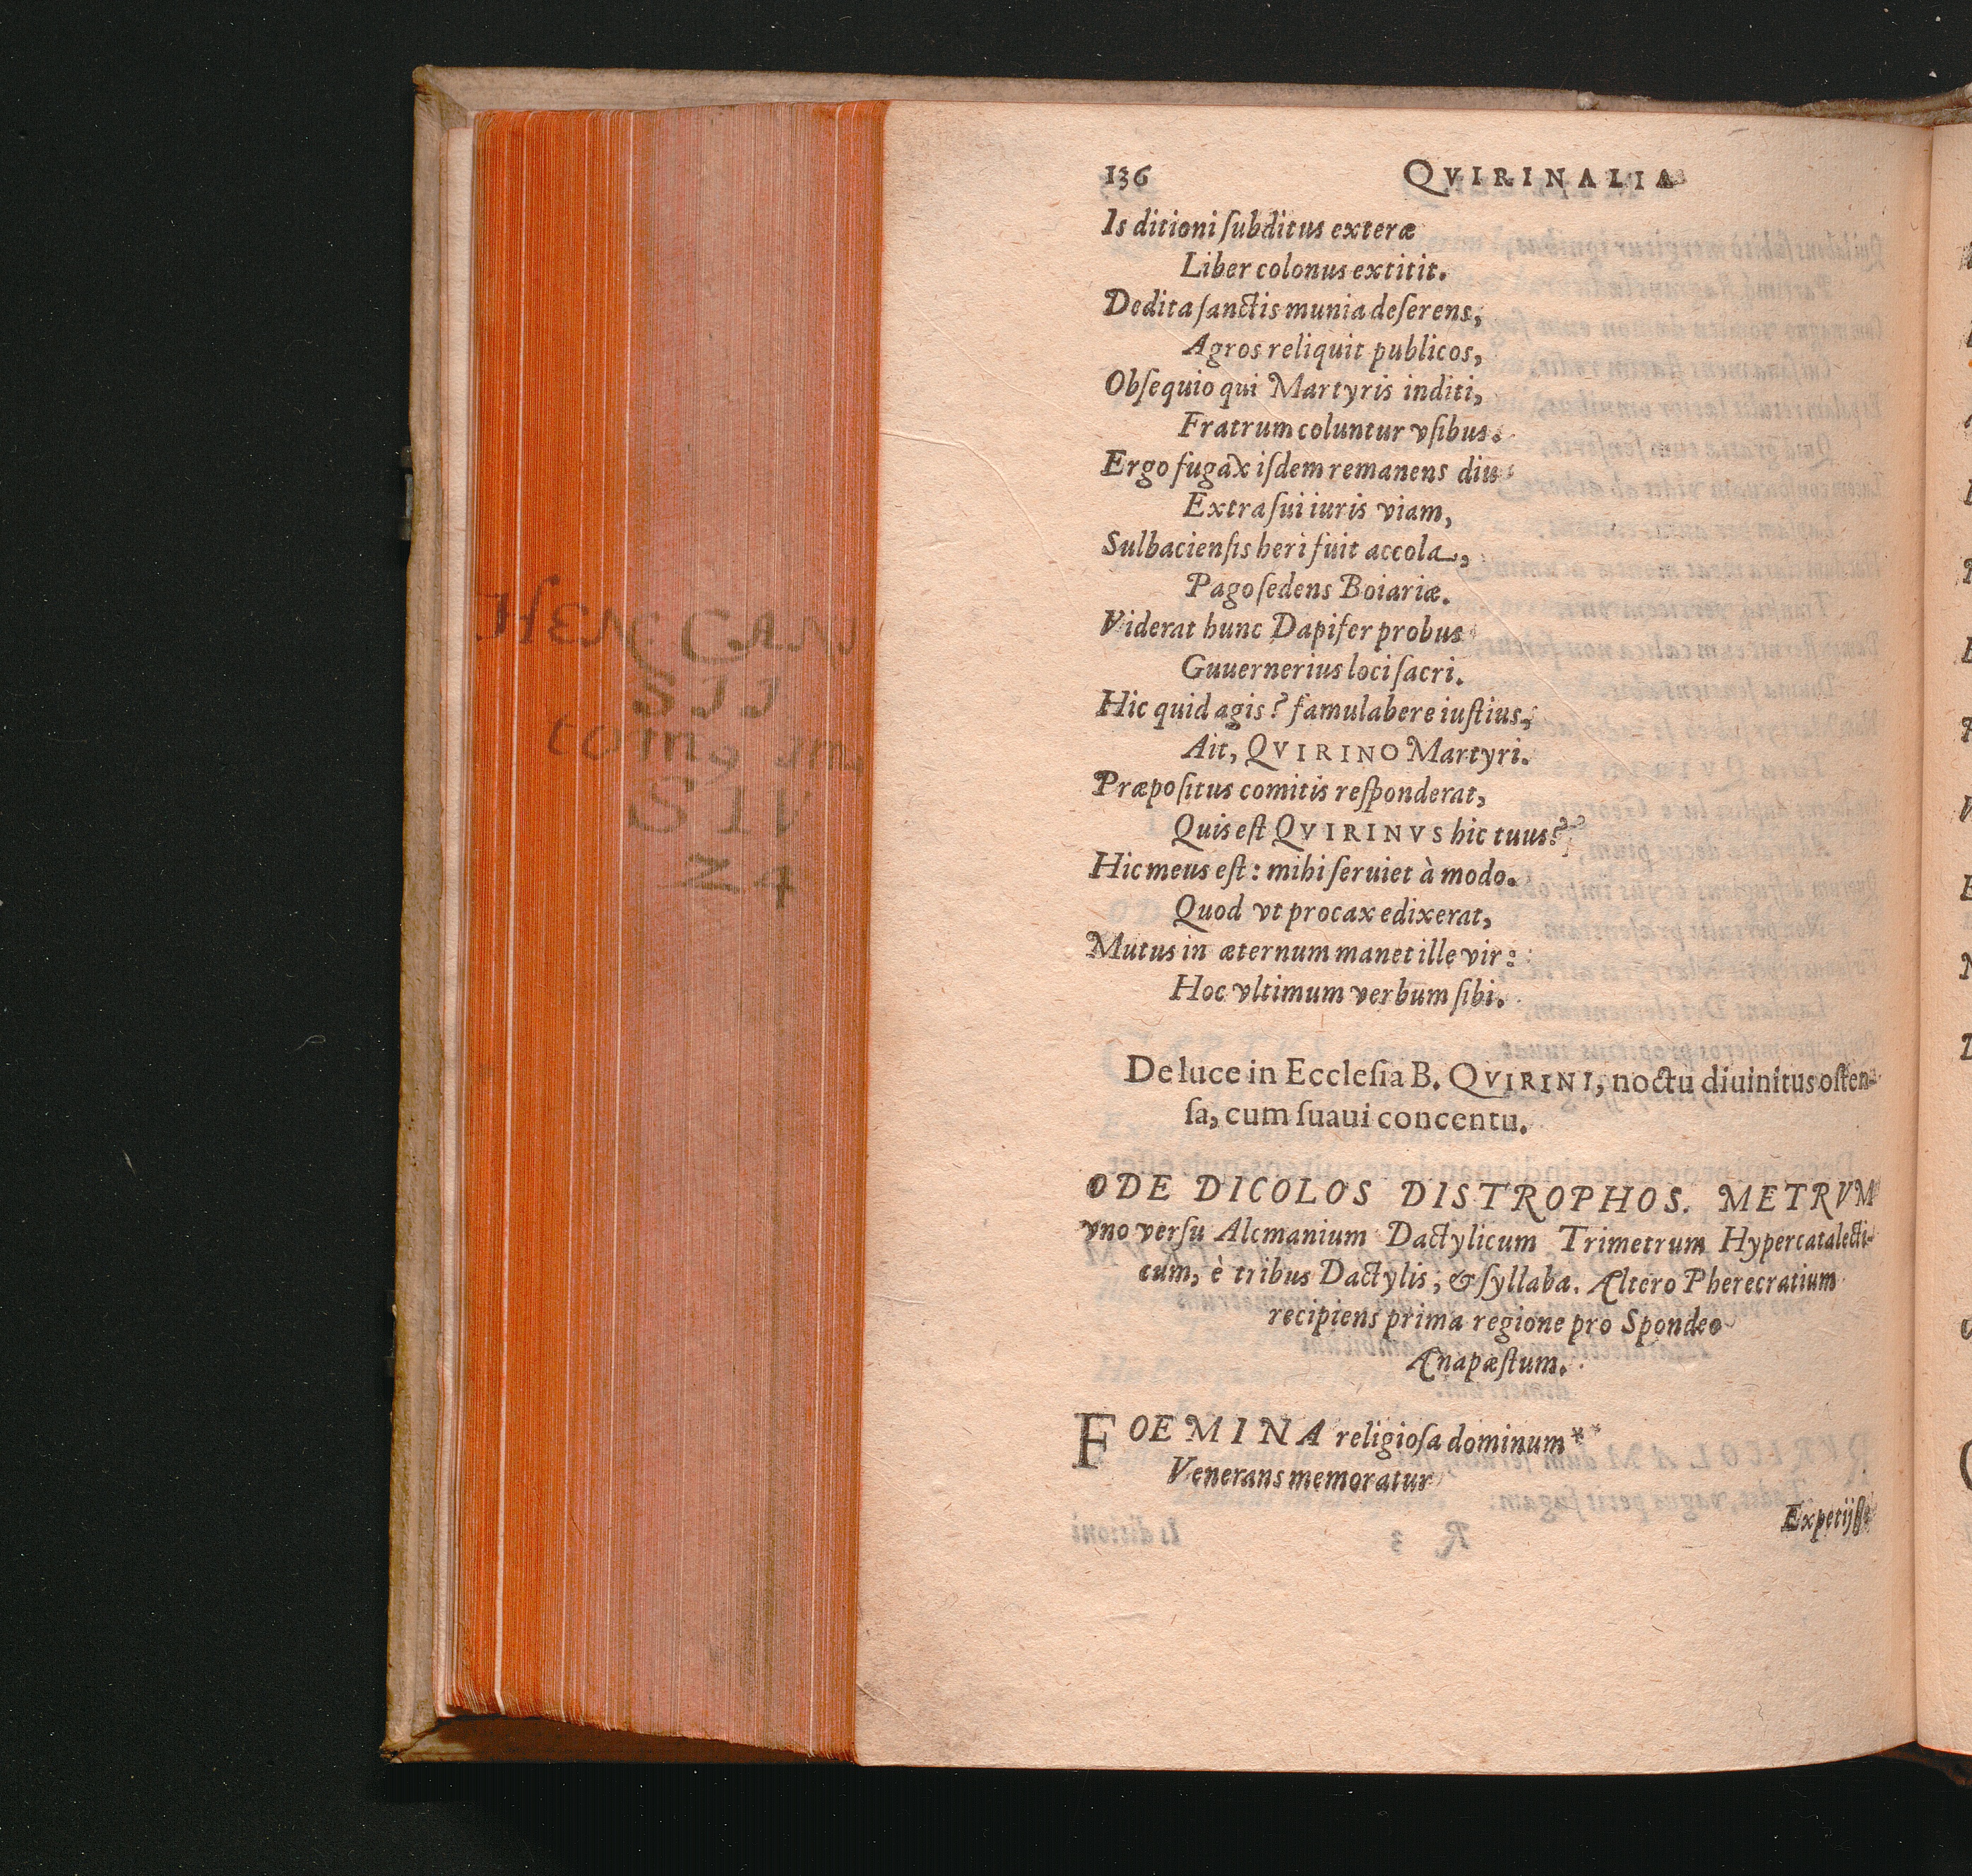 HEN CAN
SII
tom9 im9
SIV
Z4
136 QVIRINALIA
Is ditioni ſubditus exteræ
Liber colonus extitit.
Dedita ſanctis munia deſerens,
Agros reliquit publicos,
Obſequio qui Martyris inditi,
Fratrum coluntur vſibus.
Ergo fugax iſdem remanens diu
Extra ſui iuris viam,
Sulbacienſis heri fuit accola,
Pago ſedens Boiariæ.
Viderat hunc Dapifer probus
Guuernerius loci ſacri.
Hic quid agis? famulabere iuſtius,
Ait, QVIRINO Martyri.
Præpoſitus comitis reſponderat,
Quis eſt QVIRINVS hic tuus?
Hic meus eſt: mihi ſeruiet à modo.
Quod vt procax edixerat,
Mutus in æternum manet ille vir:
Hoc vltimum verbum ſibi.
De luce in Eccleſia B. QVIRINI, noctu diuinitus oſten-
ſa, cum ſuaui concentu.
ODE DICOLOS DISTROPHOS. METRVM
vno verſu Alcmanium Dactylicum Trimetrum Hypercatalecti-
cum, è tribus Dactylis, & ſyllaba. Altero Pherecratium
recipiens prima regione pro Spondeo
Anapæſtum.
FOEMINA religioſa dominum*
Venerans memoratur
Expetijſſe